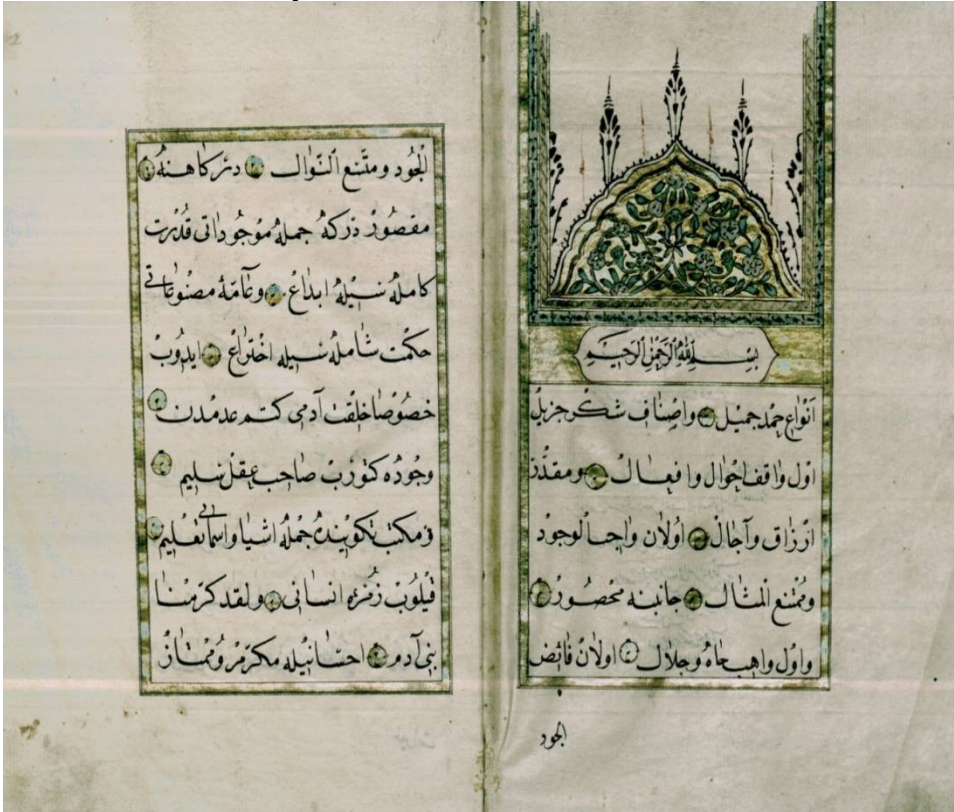 بسم الله الرحمن الرحيم
انواع حمد جميل واصناف شكر جزيل
اول واقف احوال وافعال ومقدر
ارزاق وآجال اولان واجب الوجود
وممتنع المثال جانبنه محصور
واول واهب جاه وجلال اولان فائض
الجود
الجود ومتسع النوال درگاهنه
مقصوردركه جمله موجوداتی قدرت
كامله سيله ابداع وعامه مصنوعاتی
حكمت شامله سيله اختراع ايدوب
خصوصا خلقت آدمی كتم عدمدن
وجوده كتورب صاحب عقل سليم
ومكتب تكوينده جمله اشيا واسمايی تعليم
قيلوب زمره انسانی ولقد كرمنا
بنی آدم احسانيله مكرم وممتاز